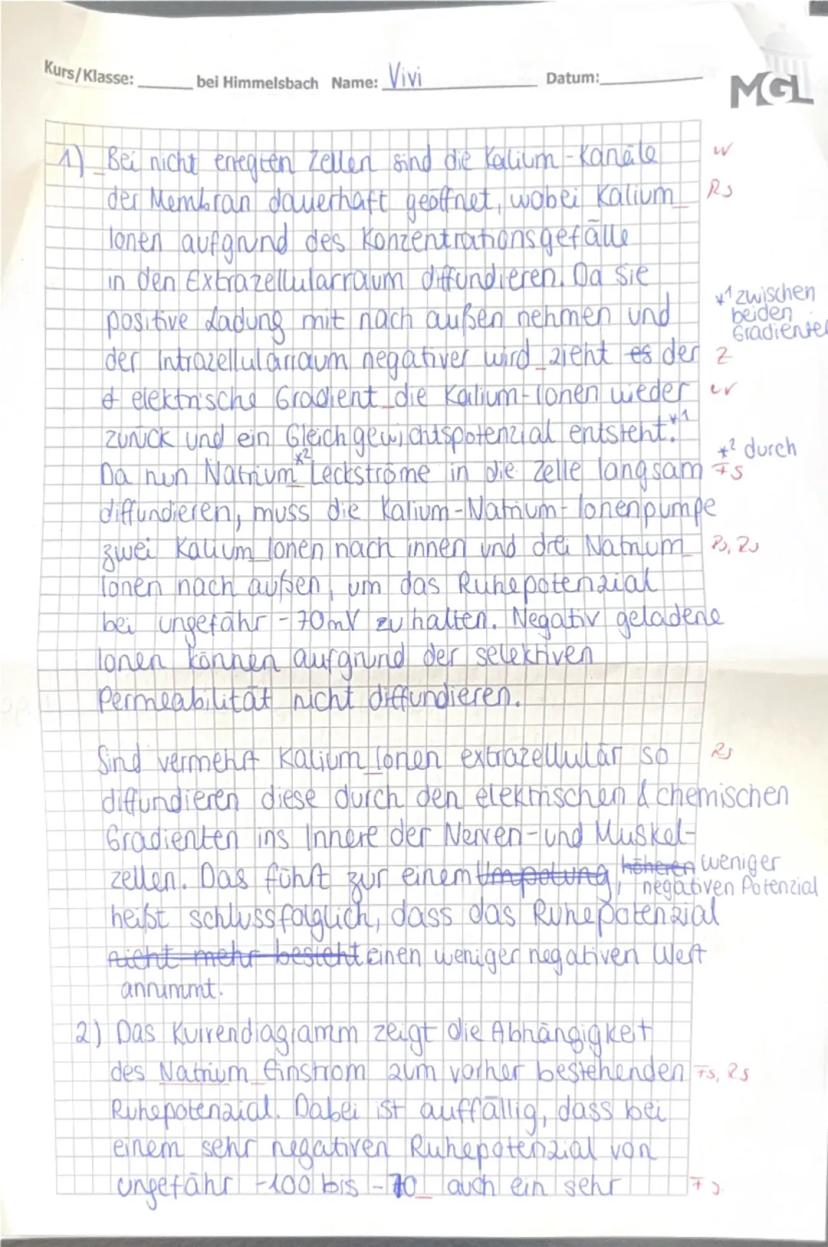 Kurs/Klasse:______ bei Himmelsbach Name: Vivi Datum:______
MGL
1) Bei nicht erregten Zellen sind die Kalium-Kanäle W
der Membran dauerhaft geöffnet, wobei Kalium_ Rs
Ionen aufgrund des Konzentrationsgefälle
in den Extrazellularraum diffundieren. Da sie
positive Ladung mit nach außen nehmen und
*1 zwischen beiden
der Intrazellularraum negativer wird_zieht es der Z
elektrische Gradient_die Kalium-Ionen wieder
zurück und ein Gleichgewichtspotenzial entsteht.*1
Da nun Natrium*2 Leckströme in die Zelle langsam Fs
*2 durch
diffundieren, muss die Kalium-Natrium-Ionenpumpe
zwei Kalium_Ionen nach innen und drei Natrium_ Rs, Rs
Ionen nach außen, um das Ruhepotenzial
bei ungefähr -70mV zu halten. Negativ geladene
Ionen können aufgrund der selektiven
Permeabilität nicht diffundieren.
Sind vermehrt Kalium_Ionen extrazellulär so Rs
diffundieren diese durch den elektrischen & chemischen
Gradienten ins Innere der Nerven- und Muskel-
zellen. Das führt zur einem Umpolung, höheren weniger
negativen Potenzial
heißt schlussfolglich, dass das Ruhepotenzial
nicht mehr besteht einen weniger negativen Wert
annimmt.
2) Das Kurvendiagramm zeigt die Abhängigkeit
des Natrium_Einstrom zum vorher bestehenden Fs, Rs
Ruhepotenzial. Dabei ist auffällig, dass bei
einem sehr negativen Ruhepotenzial von
ungefähr -100 bis -70_ auch ein sehr